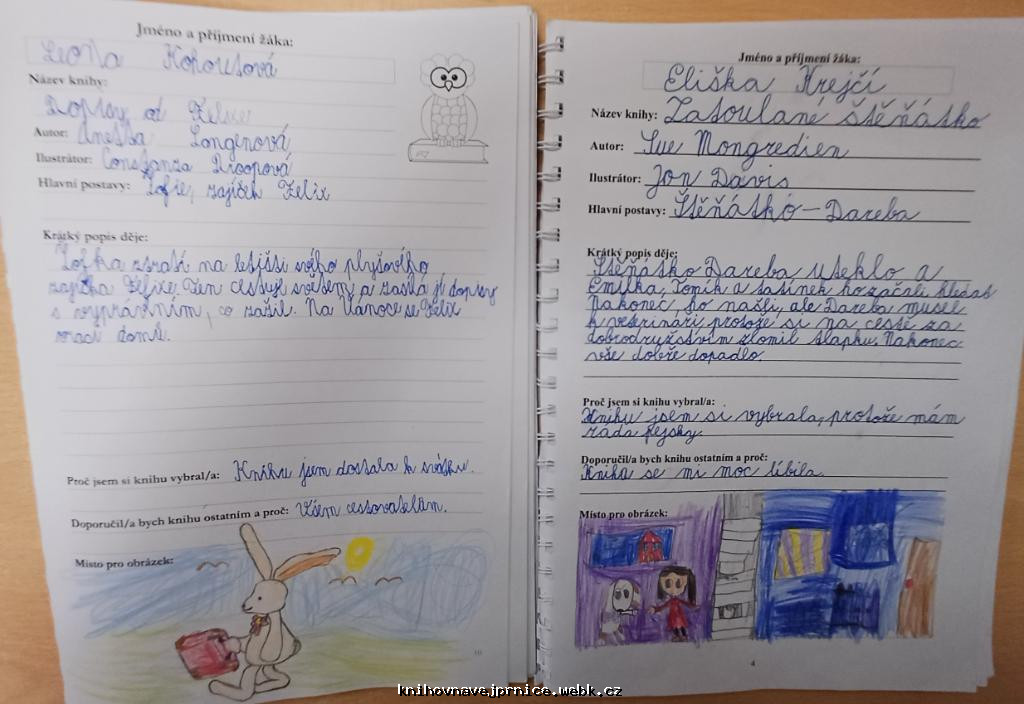 Jméno a příjmení žáka:
Leona Kohoutová
Název knihy:
Dopisy od Felixe
Autor: Anetta Langenová
Ilustrátor: Constanza Droopová
Hlavní postavy: Sofie, zajíček Felix
Krátký popis děje:
Sofka ztratí na letišti svého plyšového
zajíčka Felixe. Ten cestuje světem a zasílá jí dopisy
s vyprávěním, co zažil. Na Vánoce se Felix
vrací domů.
Proč jsem si knihu vybral/a: Knihu jsem dostala k svátku.
Doporučil/a bych knihu ostatním a proč: Všem cestovatelům.
Místo pro obrázek:
10
Jméno a příjmení žáka:
Eliška Krejčí
Název knihy: Zatoulané štěňátko
Autor: Sue Mongredien
Ilustrátor: Jon Davis
Hlavní postavy: Štěňátko - Dareba
Krátký popis děje:
Štěňátko Dareba uteklo a
Emilka, Tomík a tatínek ho začali hledat
Nakonec ho našli, ale Dareba musel
k veterináři protože si na cestě za
dobrodružstvím zlomil tlapku. Nakonec
vše dobře dopadlo.
Proč jsem si knihu vybral/a:
Knihu jsem si vybrala, protože mám
ráda pejsky.
Doporučil/a bych knihu ostatním a proč:
Kniha se mi moc líbila.
Místo pro obrázek:
4
knihovnavejprnice.webk.cz